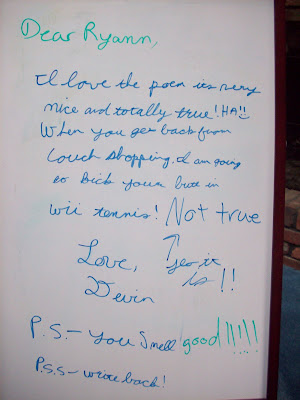 Dear Ryann,
I love the poem its very
nice and totally true! HA!!
When you get back from
couch shopping. I am going
to kick your butt in
wii tennis! Not true
yes it
is!!
Love,
Devin
P.S.- You smell good!!!!!!
P.S.S- write back!